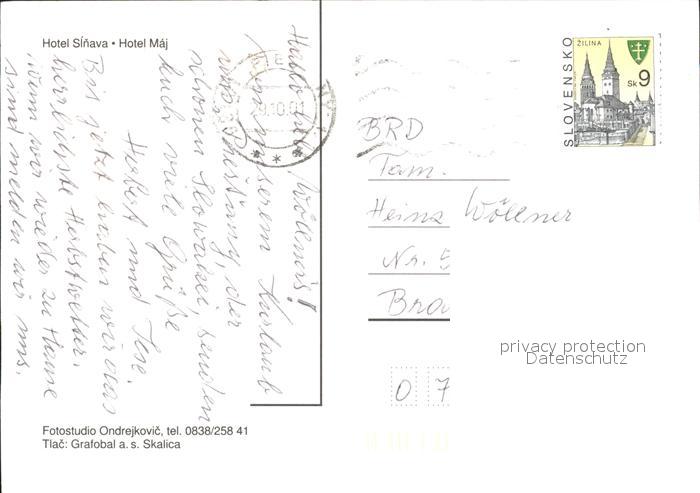 Hotel Sĺňava • Hotel Máj
Hallo Wöllners!
unserem Kurlaub
Pieštany, der
schönen Slowakei, senden
Euch viele Grüße
Herbert und Ilse.
Bis jetzt haben wir das
herrlichste Herbstwetter.
Wenn wir wieder zu Hause
sind melden wir uns.
Fotostudio Ondrejkovič, tel. 0838/258 41
Tlač: Grafobal a. s. Skalica
10.01
SLOVENSKO
ŽILINA
Sk 9
BRD
Fam.
Heinz Wöllner
Nr. 5
Bra
0 7
privacy protection
Datenschutz